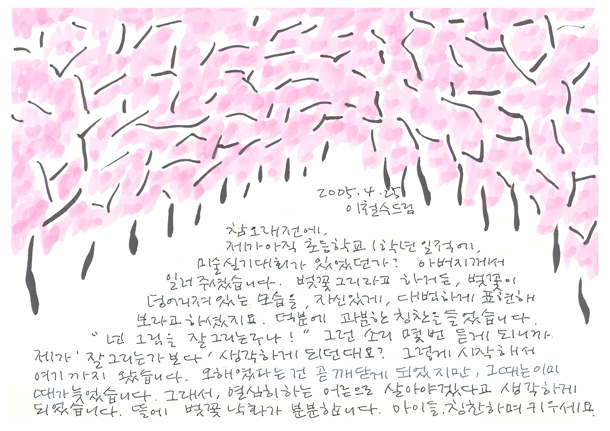 2005.4.25
이철수드림
참 오래전에,
제가 아직 초등학교 1학년일 적에,
미술실기대회가 있었던가? 아버지께서
일러 주셨습니다. 벚꽃 그리라고 하거든, 벚꽃이
덩어리져 있는 모습을, 자신있게, 대범하게 표현해
보라고 하셨지요. 덕분에 과분한 칭찬을 들었습니다.
"넌 그림을 잘 그리는구나!" 그런 소리 몇번 듣게 되니까
제가 '잘 그리는가 보다' 생각하게 되던대요? 그렇게 시작해서
여기까지 왔습니다. 오해였다는 건 곧 깨닫게 되었지만, 그때는 이미
때가 늦었습니다. 그래서, 열심히하는 어른으로 살아야겠다고 생각하게
되었습니다. 뜰에 벚꽃 낙화가 분분합니다. 아이들, 칭찬하며 키우세요.